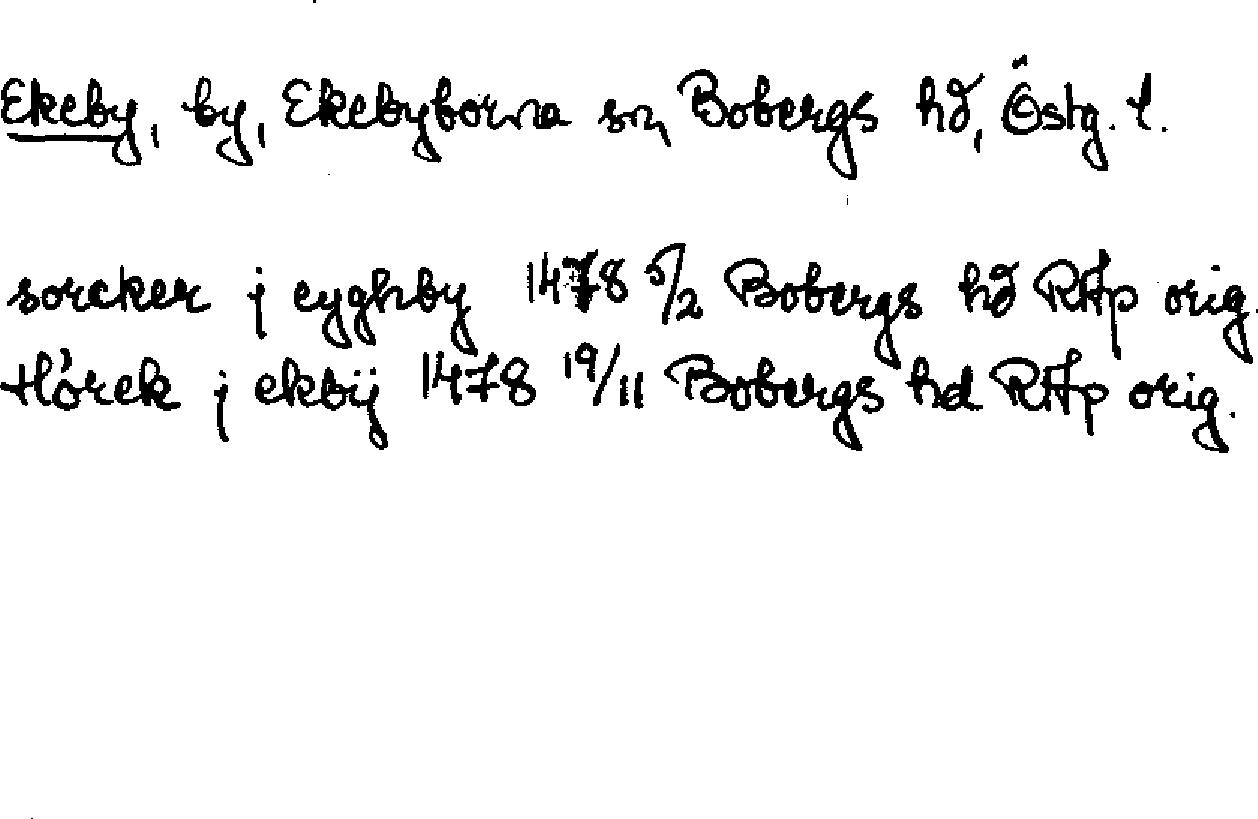 Ekeby, by, Ekebyborna sn, Bobergs hd, Östg. l.
sorcker j eyghby 1478 5/2 Bobergs hd RAp orig.
Hórek j ekbÿ 1478 19/11 Bobergs hd RAp orig.